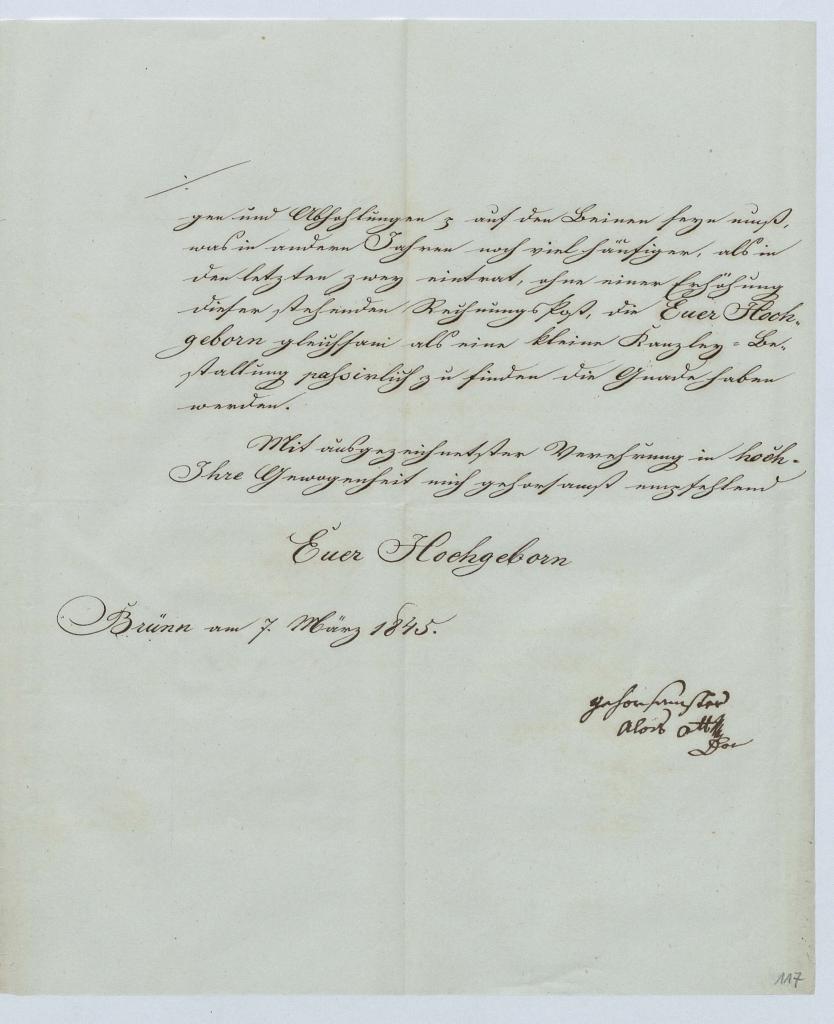 gen und Abhohlungen z auf den Beinen seyn muß,
was in andern Jahren noch viel häufiger, als in
den letzten zwey eintrat, ohne einer Erhöhung
dieser stehenden Rechnungspost, die Euer Hoch-
geborn gleichsam als eine kleine Kanzley-Be-
stallung passirlich zu finden die Gnade haben
werden.
Mit ausgezeichnetster Verehrung in hoch-
Ihre Gewogenheit mich gehorsamst empfehlend
Euer Hochgeborn
Brünn am 7. März 1845.
gehorsamster
Alois
Dor
117